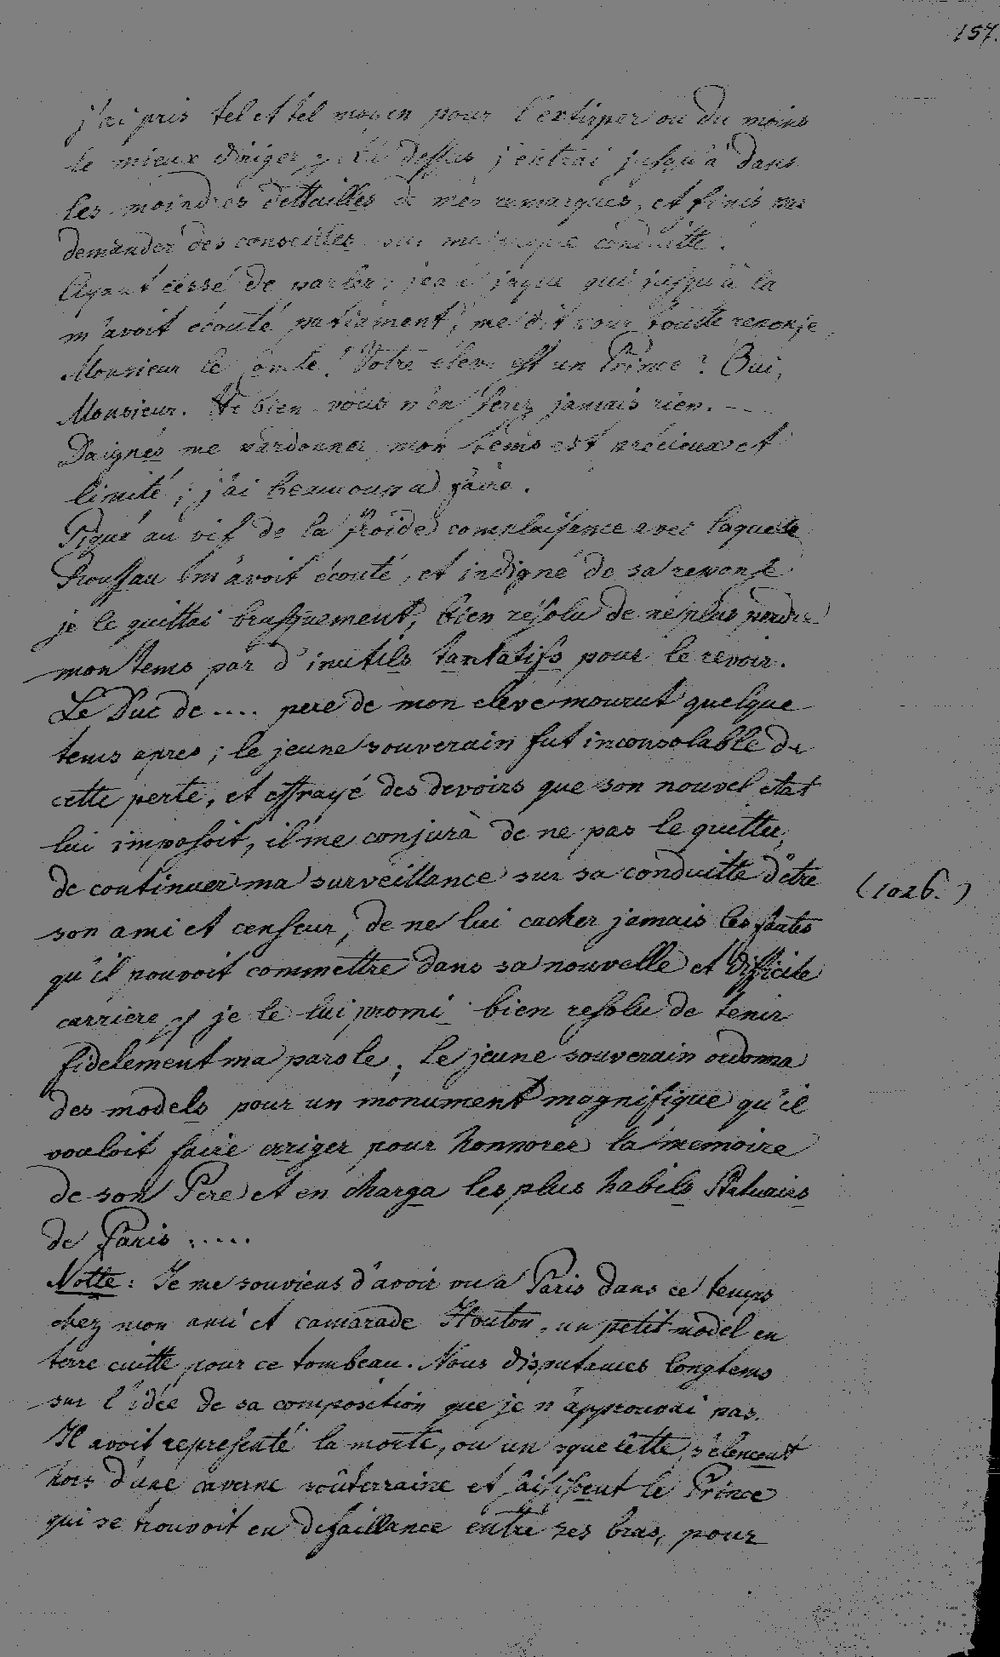 157.
j'ai pris tel et tel moyen pour l'extirper ou du moins
le mieux diriger, la dessus j'entrai jusqu'a dans
les moindres dettailles de mes remarques, et finis
demander des conseilles sur ma propre conduitte.
Ayant cessé de parler, jean jaque qui jusqu'a la
m'avoit écouté patiament, me dit pour toutte reponse,
Monsieur le Comte! Votre eleve est un Prince? Oui,
Monsieur. He bien vous n'en ferez jamais rien. ---
Daignés me pardonner, mon tems est précieux et
limité; j'ai beaucoup a faire.
Piqué au vif de la froide complaisance avec laquelle
Roussau m'avoit écouté, et indigné de sa reponse
je le quittai brusquement, bien résolu de ne plus perdre
mon tems par d'inutils tantatifs pour le revoir.
Le Duc de .... pere de mon eleve mourut quelque
tems apres; le jeune souverain fut inconsolable de
cette perte, et effrayé des devoirs que son nouvel etat
lui imposoit, il me conjurà de ne pas le quitter,
de continuer ma surveillance sur sa conduitte d'être
(1026.)
son ami et censeur, de ne lui cacher jamais les fautes
qu'il pouvoit commettre dans sa nouvelle et difficile
carriere, je le lui promi bien resolu de tenir
fidelement ma parole. Le jeune souverain ordonna
des models pour un monument magnifique qu'il
vouloit faire erriger pour honnorer la memoire
de son Pere et en charga les plus habils Statuairs
de Paris .....
Notte: Je me souviens d'avoir vu a Paris dans ce temps
chez mon ami et camarade Houton, un petit model en
terre cuitte pour ce tombeau. Nous disputames longtems
sur l'idée de sa composition que je n'approuvai pas.
Il avoit representé la morte, ou un squelette s'élencent
hors d'une caverne soûterraine et saisissent le Prince
qui se trouvoit en defaillance entre ses bras, pour